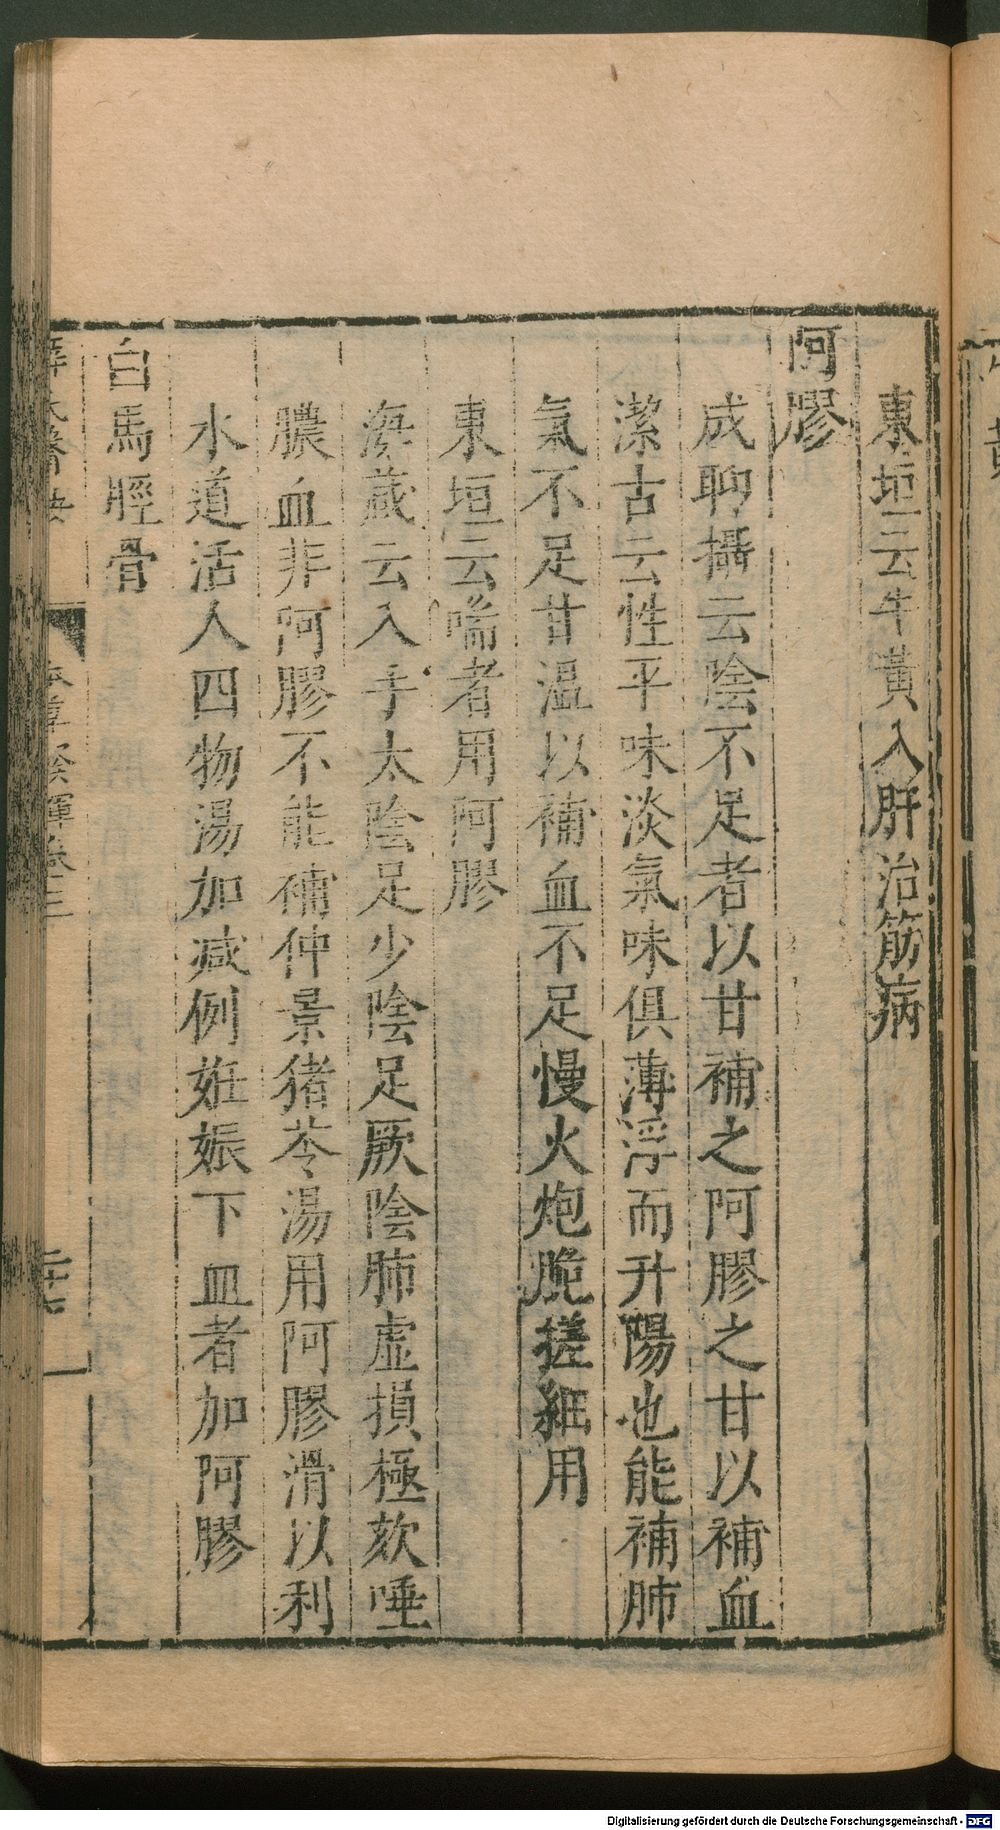 東垣云牛黃入肝治筋病
阿膠
成聊攝云陰不足者以甘補之阿膠之甘以補血
潔古云性平味淡氣味俱薄浮而升陽也能補肺
氣不足甘溫以補血不足慢火炮脆搓細用
東垣云喘者用阿膠
海藏云入手太陰足少陰足厥陰肺虛損極欬唾
膿血非阿膠不能補仲景猪苓湯用阿膠滑以利
水道活人四物湯加减例姙娠下血者加阿膠
白馬脛骨
本草發揮卷三
二十七
Digitalisierung gefördert durch die Deutsche Forschungsgemeinschaft - DFG